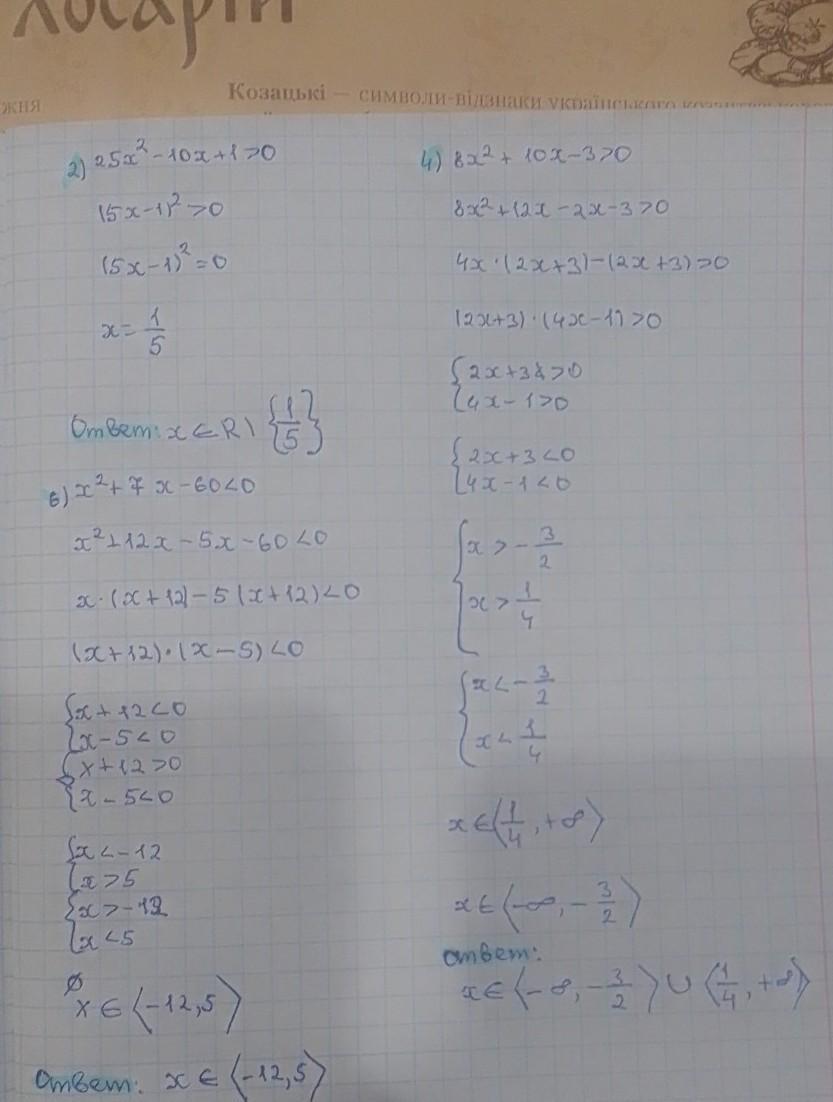 Козацькі — символи-відзнаки українського
жня
2) 25x² - 10x + 1 > 0
(5x - 1)² > 0
(5x - 1)² = 0
x = 1/5
Ответ: x ∈ R \ {1/5}
6) x² + 7x - 60 < 0
x² + 12x - 5x - 60 < 0
x · (x + 12) - 5(x + 12) < 0
(x + 12) · (x - 5) < 0
{x + 12 < 0
{x - 5 < 0
{x + 12 > 0
{x - 5 < 0
{x < -12
{x > 5
{x > -12
{x < 5
∅
x ∈ ⟨-12, 5⟩
Ответ: x ∈ ⟨-12, 5⟩
4) 8x² + 10x - 3 > 0
8x² + 12x - 2x - 3 > 0
4x · (2x + 3) - (2x + 3) > 0
(2x + 3) · (4x - 1) > 0
{2x + 3 > 0
{4x - 1 > 0
{2x + 3 < 0
{4x - 1 < 0
{x > -3/2
{x > 1/4
{x < -3/2
{x < 1/4
x ∈ ⟨1/4, +∞⟩
x ∈ ⟨-∞, -3/2⟩
ответ:
x ∈ ⟨-∞, -3/2⟩ ∪ ⟨1/4, +∞⟩